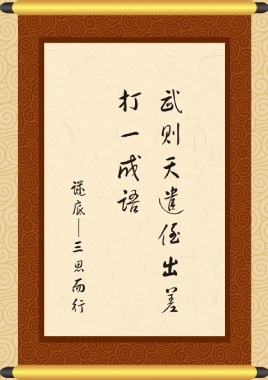 武则天遣侄出差
打一成语
谜底——三思而行